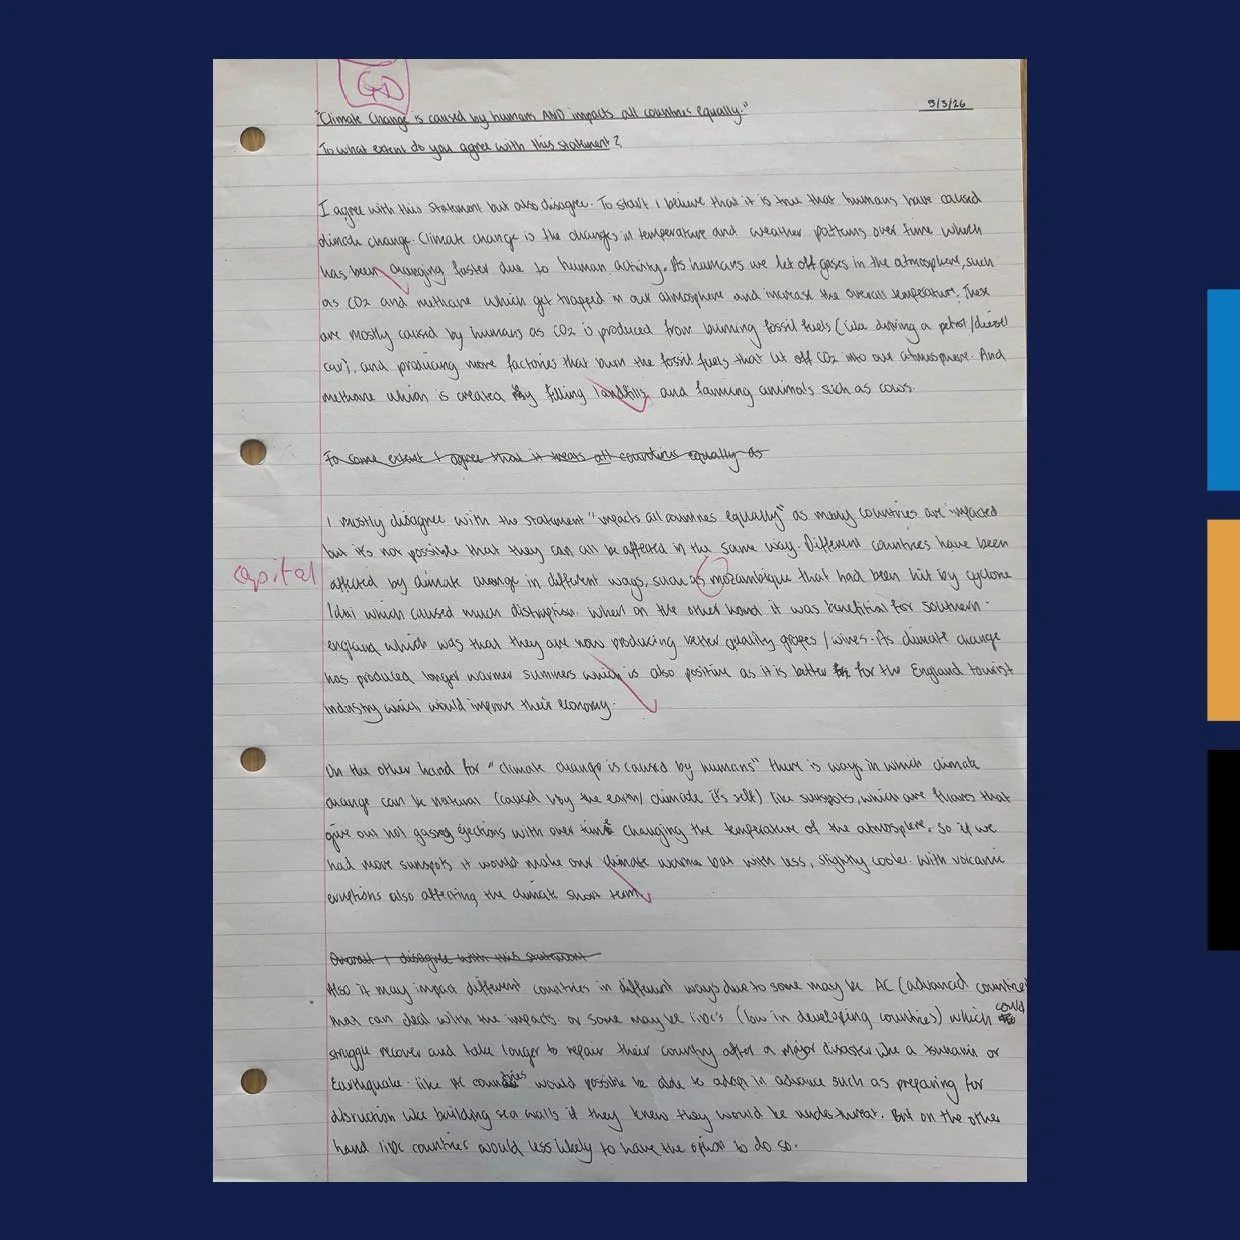 GD
5/3/26
"Climate Change is caused by humans AND impacts all countries equally."
To what extent do you agree with this statement?
I agree with this statement but also disagree. To start I believe that it is true that humans have caused
climate change. Climate change is the changes in temperature and weather patterns over time which
has been changing faster due to human activity. As humans we let off gases in the atmosphere, such
as CO2 and methane which get trapped in our atmosphere and increase the overall temperature. These
are mostly caused by humans as CO2 is produced from burning fossil fuels (like driving a petrol/diesel
car), and producing more factories that burn the fossil fuels that let off CO2 into our atmosphere. And
methane which is created by filling landfills, and farming animals such as cows.
To some extent I agree that it treats all countries equally as
I mostly disagree with the statement "impacts all countries equally" as many countries are impacted
but it's not possible that they can all be affected in the same way. Different countries have been
capital
affected by climate change in different ways, such as mozambique that had been hit by cyclone
Idai which caused much disruption. When on the other hand it was benefitial for southern
england which was that they are now producing better quality grapes/wines. As climate change
has produced longer warmer summers which is also positive as it is better for the England tourist
industry which would improve their economy.
On the other hand for "climate change is caused by humans" there is ways in which climate
change can be natural (caused by the earth/climate it's self) like sunspots, which are flares that
give out hot gas ejections with over time changing the temperature of the atmosphere. So if we
had more sunspots it would make our climate warmer but with less, slightly cooler. With volcanic
eruptions also affecting the climate short term.
Overall I disagree with this statement
Also it may impact different countries in different ways due to some may be AC (advanced countries
that can deal with the impacts. or some may be LIDC's (low in developing countries) which could
struggle recover and take longer to repair their country after a major disaster like a tsunami or
Earthquake. like AC countries would possible be able to adapt in advance such as preparing for
disruction like building sea walls if they knew they would be under threat. But on the other
hand LIDC countries would less likely to have the option to do so.